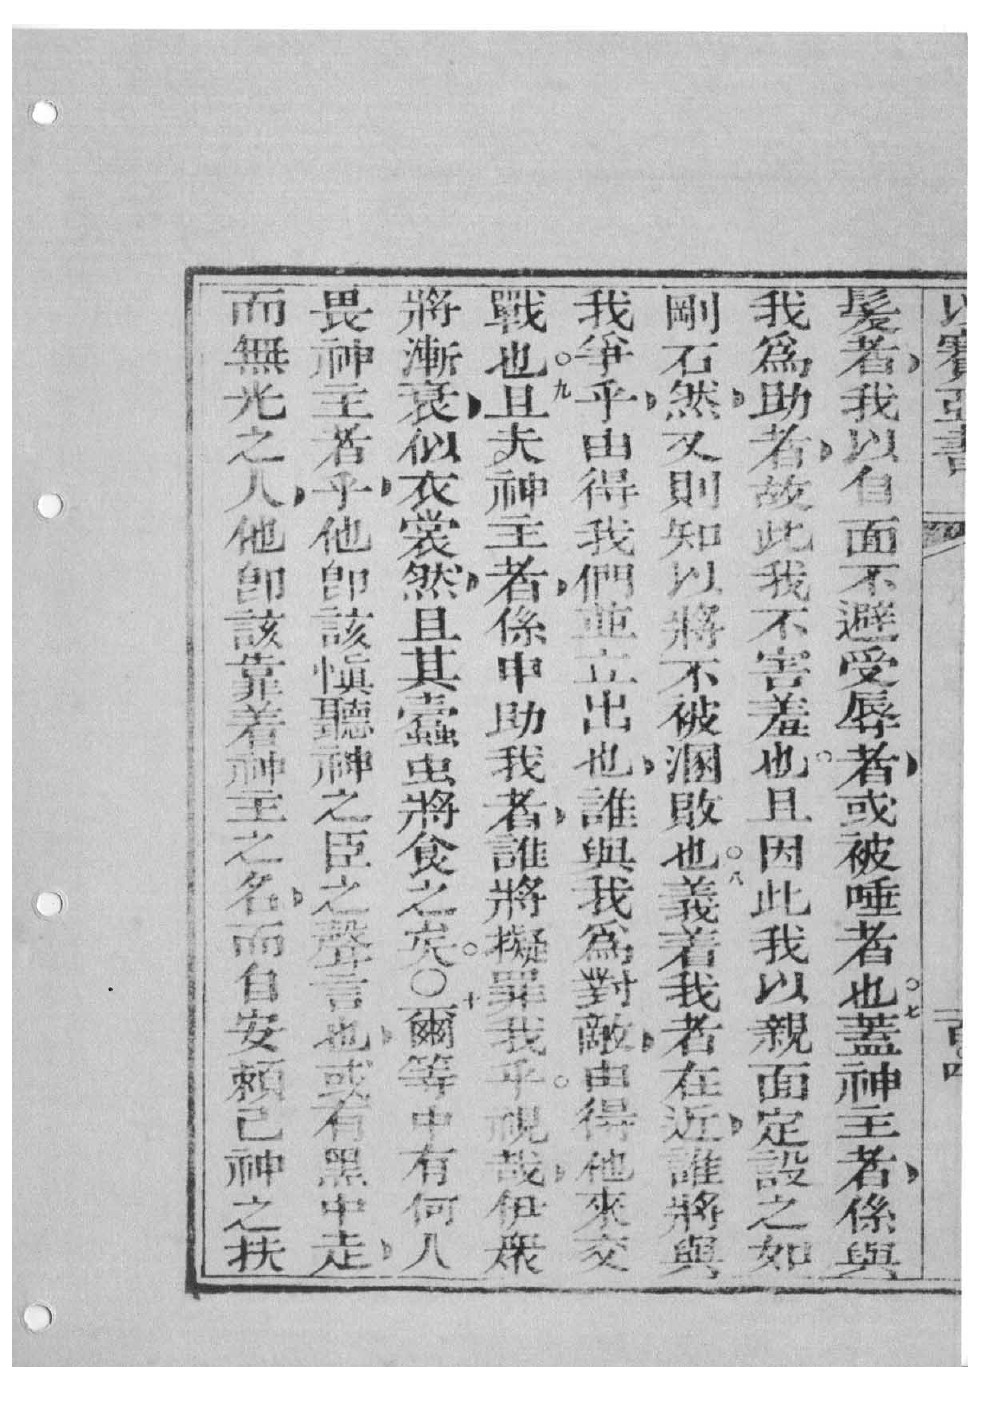 以賽亞書 百四
髮者我以自面不避受辱者或被唾者也○七蓋神主者係與
我為助者故此我不害羞也○且因此我以親面定設之如
剛石然又則知以將不被溷敗也○八義着我者在近誰將與
我爭乎由得我們並立出也誰與我為對敵由得他來交
戰也○九且夫神主者係申助我者誰將擬罪我乎○視哉伊衆
將漸衰似衣裳然且其蠹虫將食之矣○○十爾等中有何人
畏神主者乎他卽該愼聽神之臣之聲言也或有黑中走
而無光之人他卽該靠着神主之名而自安賴己神之扶